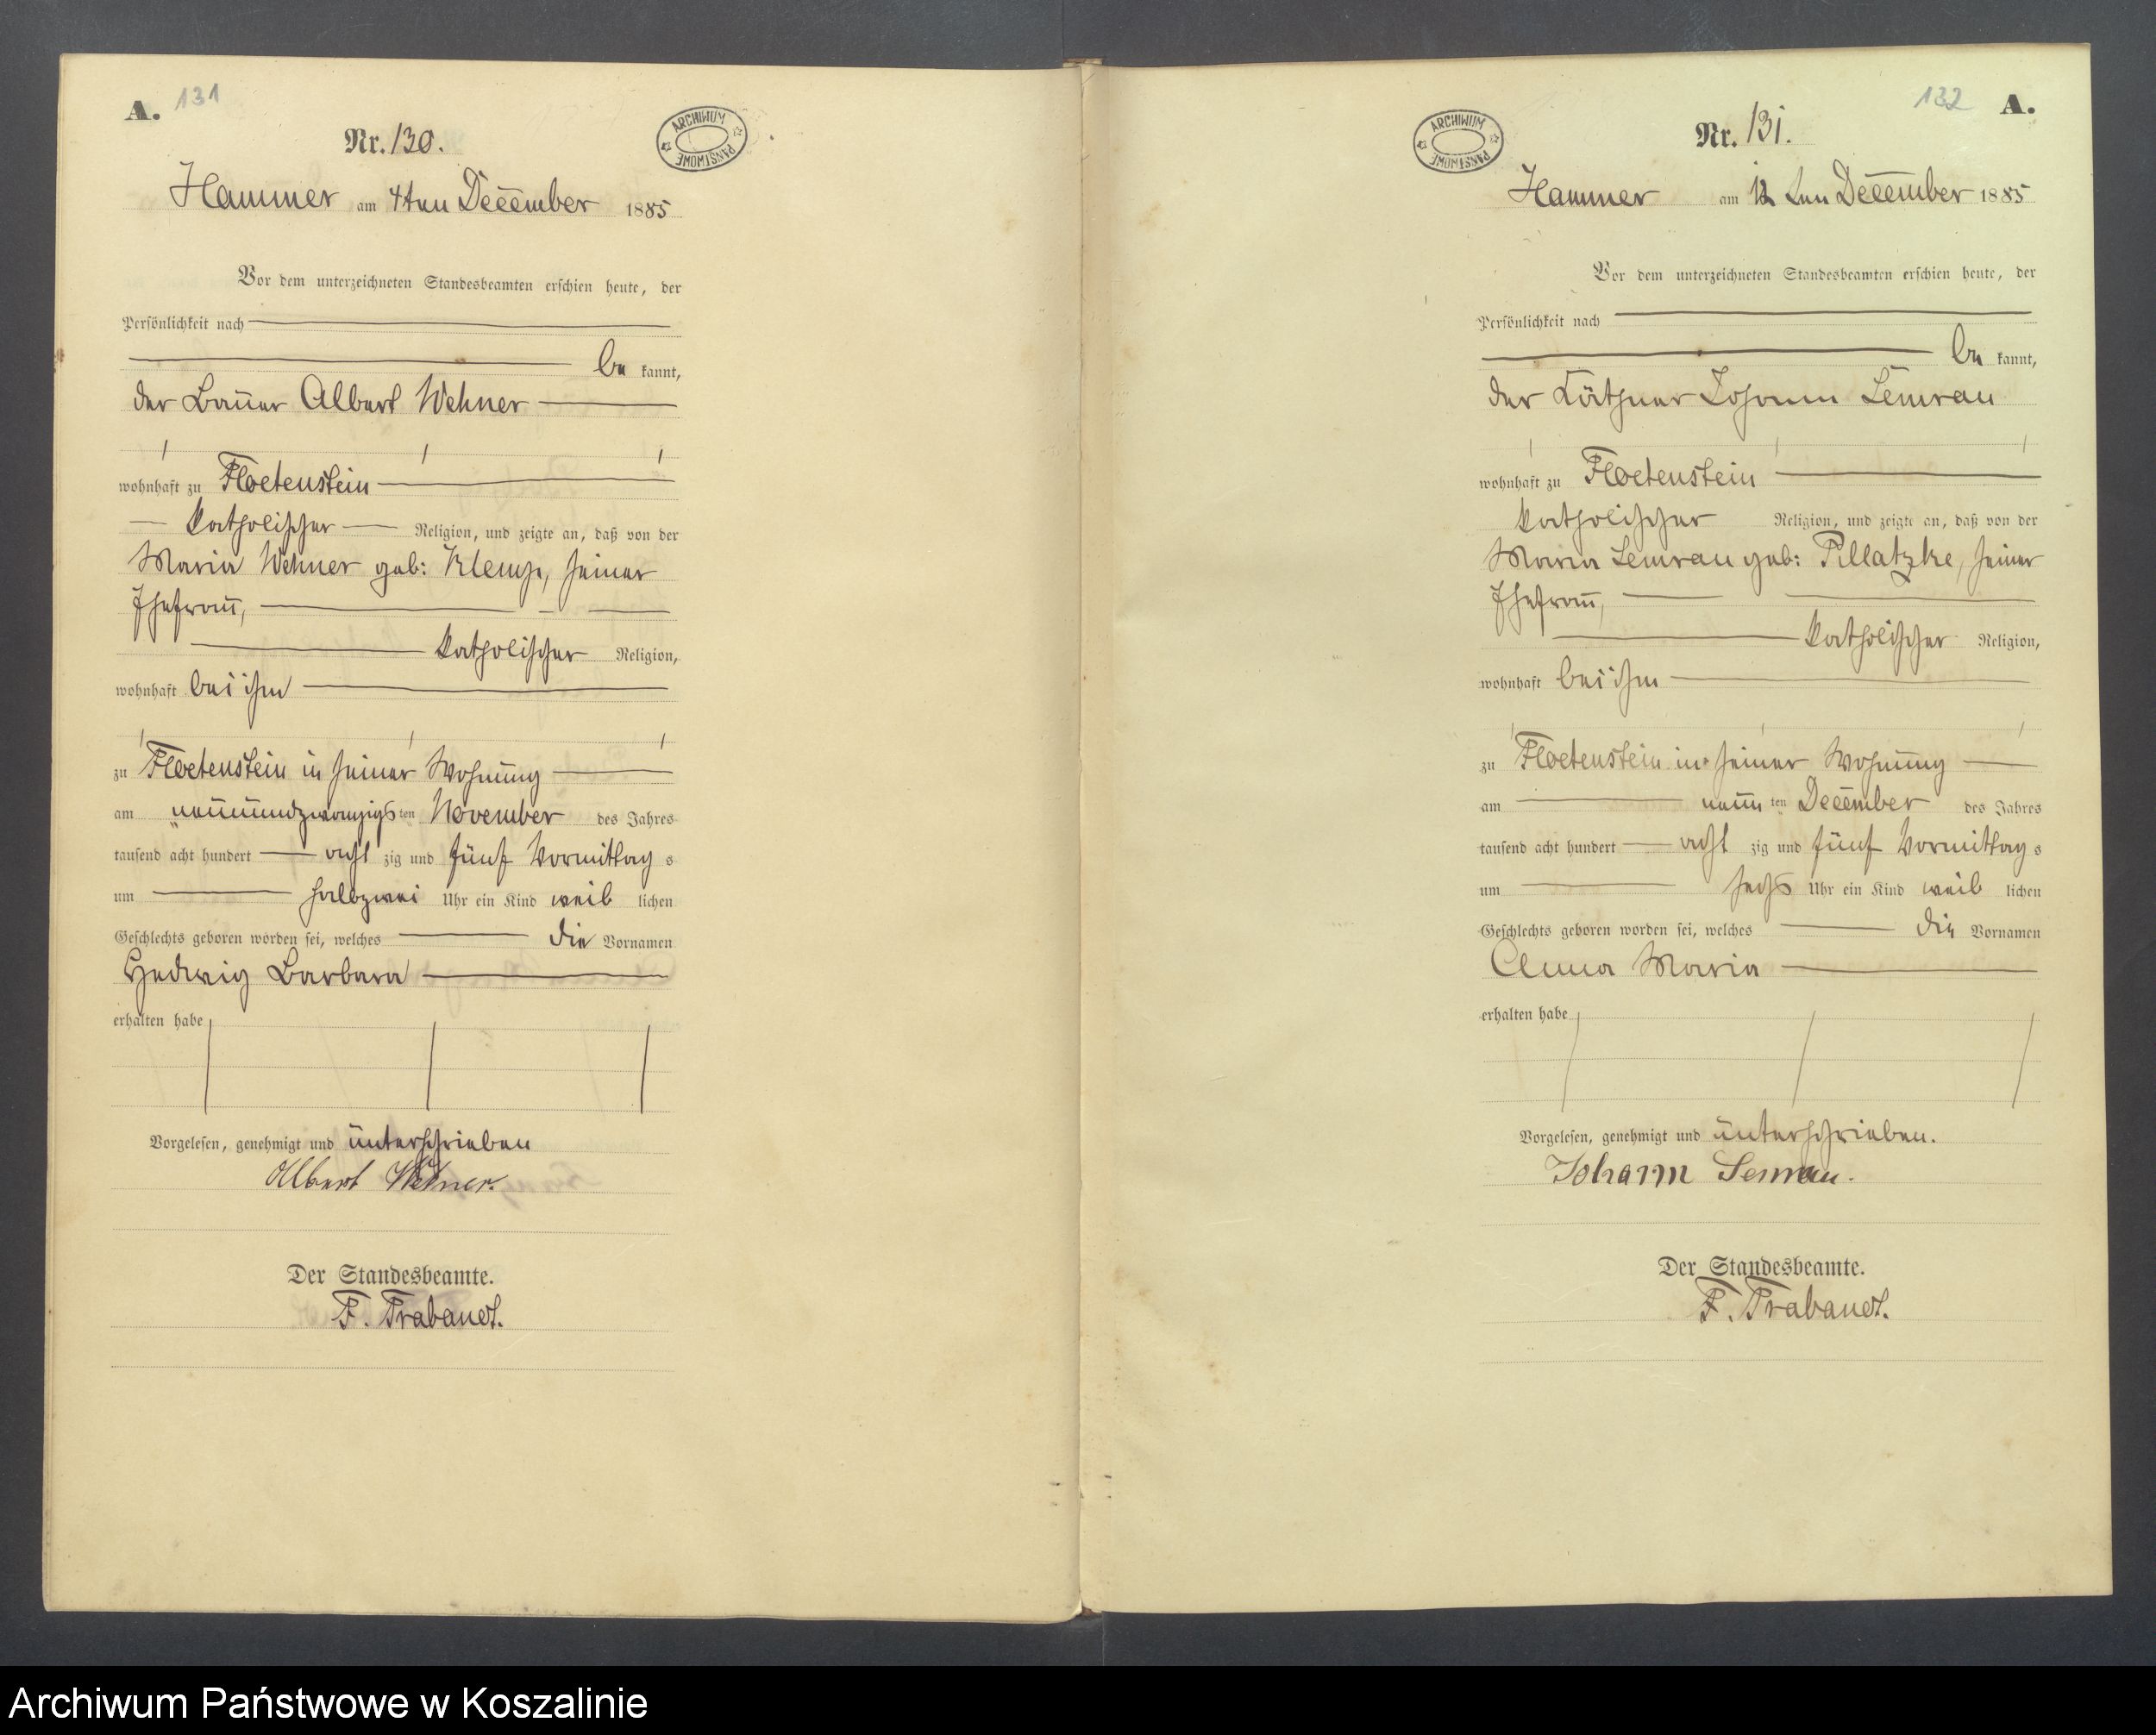 A. 131
ARCHIWUM PAŃSTWOWE
Nr. 130.
Hammer am 4ten December 1885
Vor dem unterzeichneten Standesbeamten erschien heute, der
Persönlichkeit nach
be kannt,
der Bauer Albert Wehner
wohnhaft zu Floetenstein
katholischer Religion, und zeigte an, daß von der
Maria Wehner geb: Klemp, seiner
Ehefrau,
katholischer Religion,
wohnhaft bei ihm
zu Floetenstein in seiner Wohnung
am neunundzwanzigsten November des Jahres
tausend acht hundert acht zig und fünf Vormittag s
um halbzwei Uhr ein Kind weib lichen
Geschlechts geboren worden sei, welches die Vornamen
Hedwig Barbara
erhalten habe
Vorgelesen, genehmigt und unterschrieben
Albert Wehner.
Der Standesbeamte.
F. Trabandt.
132 A.
ARCHIWUM PAŃSTWOWE
Nr. 131.
Hammer am 12ten December 1885
Vor dem unterzeichneten Standesbeamten erschien heute, der
Persönlichkeit nach
be kannt,
der Käthner Johann Semrau
wohnhaft zu Floetenstein
katholischer Religion, und zeigte an, daß von der
Maria Semrau geb: Pillatzke, seiner
Ehefrau,
katholischer Religion,
wohnhaft bei ihm
zu Floetenstein in seiner Wohnung
am neun ten December des Jahres
tausend acht hundert acht zig und fünf Vormittag s
um sechs Uhr ein Kind weib lichen
Geschlechts geboren worden sei, welches die Vornamen
Anna Maria
erhalten habe
Vorgelesen, genehmigt und unterschrieben.
Johann Semrau.
Der Standesbeamte.
F. Trabandt.
Archiwum Państwowe w Koszalinie